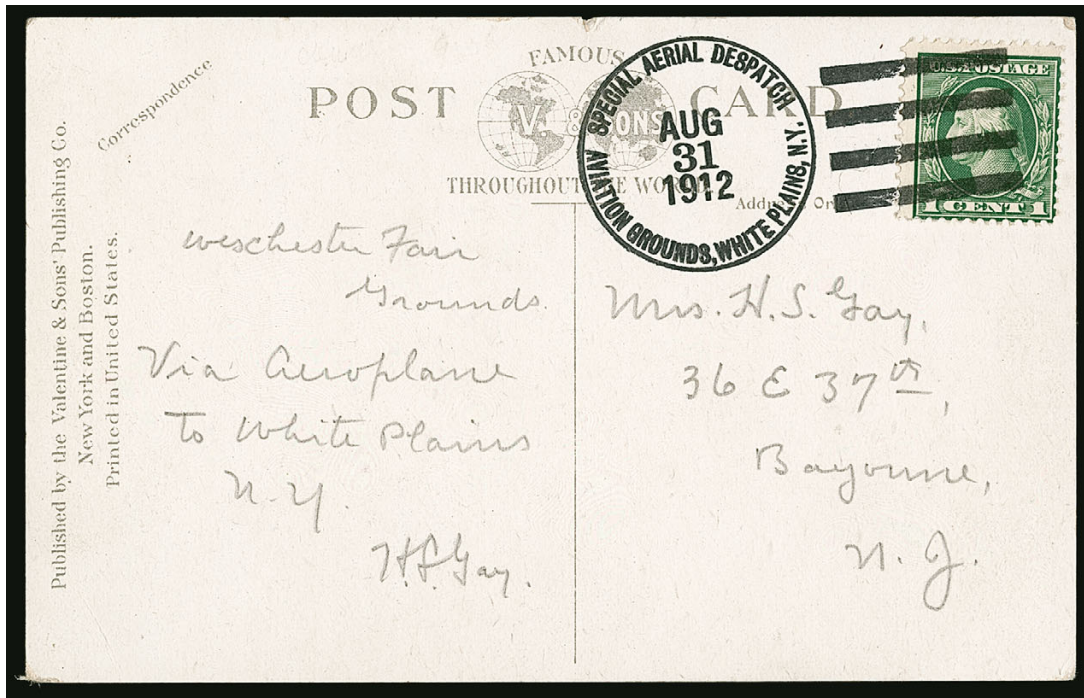 Published by the Valentine & Sons' Publishing Co.
New York and Boston.
Printed in United States.
Correspondence
FAMOUS
POST CARD
V. & SONS
THROUGHOUT THE WORLD
SPECIAL AERIAL DESPATCH
AUG
31
1912
AVIATION GROUNDS, WHITE PLAINS, N.Y.
U.S. POSTAGE
1 CENT 1
weschester Fair
Grounds.
Via Aeroplane
To White Plains
N.Y.
H.S. Gay.
Mrs. H. S. Gay,
36 E 37th,
Bayonne,
N. J.